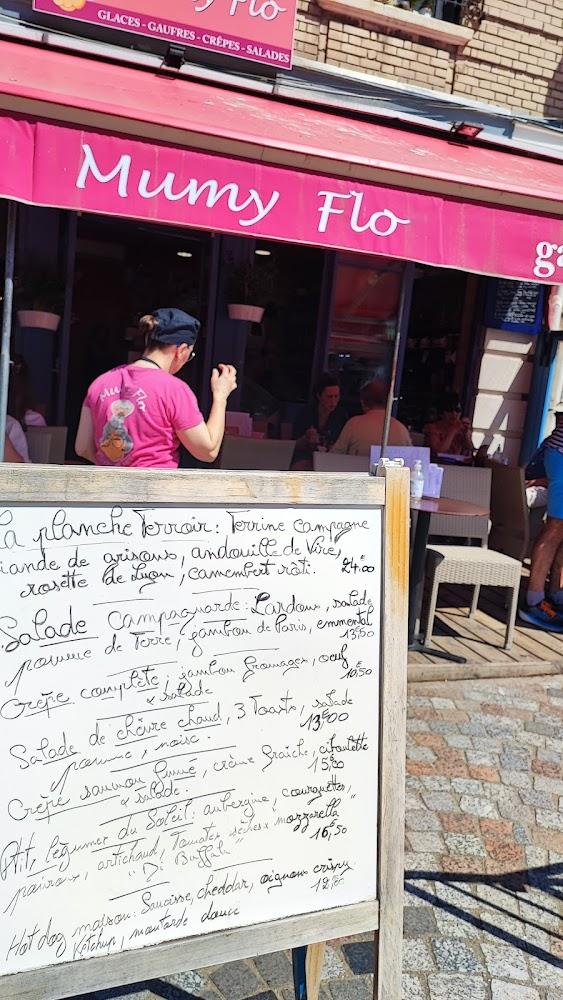 my Flo
GLACES - GAUFRES - CRÊPES - SALADES
Mumy Flo
ga
Mumy Flo
La planche Terroir : Terrine Campagne
viande de grisons, andouille de Vire,
rosette de Lyon, camembert rôti. 24€00
Salade Campagnarde : Lardons, salade
pomme de Terre, jambon de Paris, emmental
13€50
Crêpe complète : jambon fromages, oeuf
& salade 10€50
Salade de chèvre chaud, 3 Toasts, salade
pomme, noix. 13€00
Crêpe saumon fumé, crème fraîche, ciboulette
& salade. 15€00
Ptit, légumes du Soleil : aubergine, courgettes,
poivrons, artichaud, Tomates séchées mozzarella
"Di Buffala" 16€50
Hot dog maison : Saucisse, cheddar, oignons crispy
Ketchup, moutarde douce 12€00